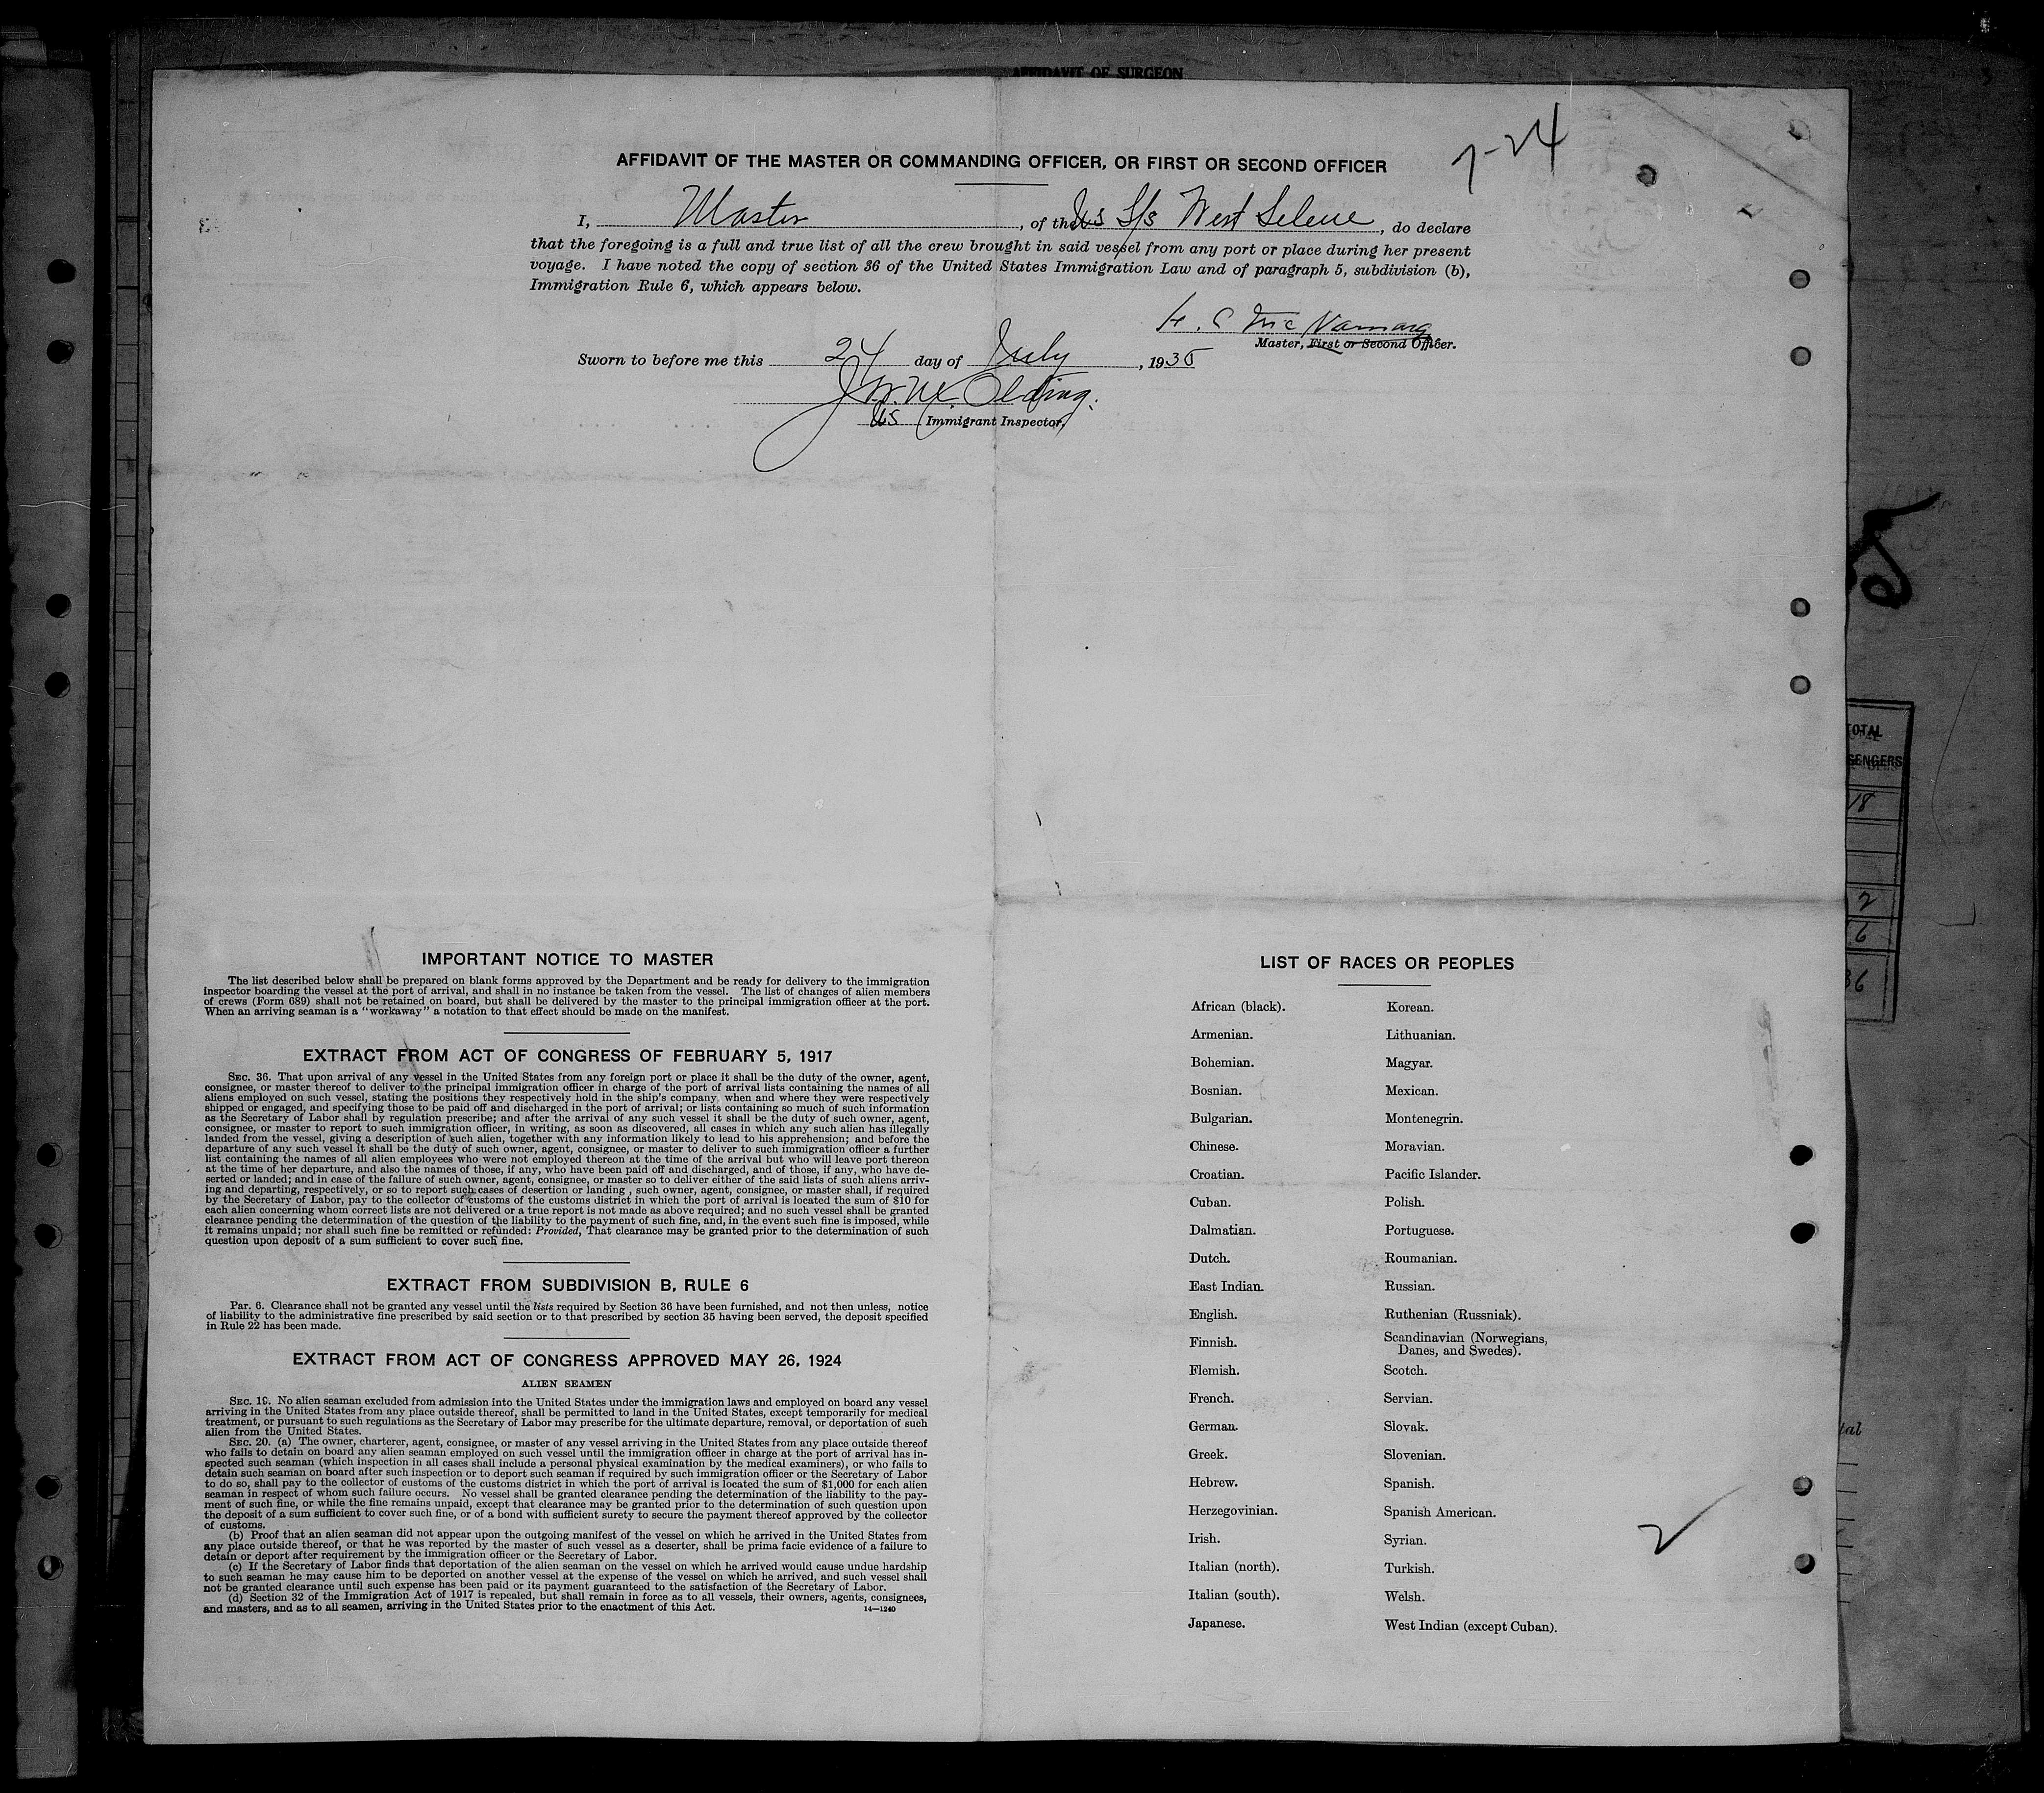 AFFIDAVIT OF SURGEON
7-24
AFFIDAVIT OF THE MASTER OR COMMANDING OFFICER, OR FIRST OR SECOND OFFICER
I, Master, of the US S/s West Selene, do declare
that the foregoing is a full and true list of all the crew brought in said vessel from any port or place during her present
voyage. I have noted the copy of section 36 of the United States Immigration Law and of paragraph 5, subdivision (b),
Immigration Rule 6, which appears below.
Master, First or Second Officer.
Sworn to before me this 24 day of July, 1935
US Immigrant Inspector.
IMPORTANT NOTICE TO MASTER
The list described below shall be prepared on blank forms approved by the Department and be ready for delivery to the immigration
inspector boarding the vessel at the port of arrival, and shall in no instance be taken from the vessel. The list of changes of alien members
of crews (Form 689) shall not be retained on board, but shall be delivered by the master to the principal immigration officer at the port.
When an arriving seaman is a "workaway" a notation to that effect should be made on the manifest.
EXTRACT FROM ACT OF CONGRESS OF FEBRUARY 5, 1917
SEC. 36. That upon arrival of any vessel in the United States from any foreign port or place it shall be the duty of the owner, agent,
consignee, or master thereof to deliver to the principal immigration officer in charge of the port of arrival lists containing the names of all
aliens employed on such vessel, stating the positions they respectively hold in the ship's company, when and where they were respectively
shipped or engaged, and specifying those to be paid off and discharged in the port of arrival; or lists containing so much of such information
as the Secretary of Labor shall by regulation prescribe; and after the arrival of any such vessel it shall be the duty of such owner, agent,
consignee, or master to report to such immigration officer, in writing, as soon as discovered, all cases in which any such alien has illegally
landed from the vessel, giving a description of such alien, together with any information likely to lead to his apprehension; and before the
departure of any such vessel it shall be the duty of such owner, agent, consignee, or master to deliver to such immigration officer a further
list containing the names of all alien employees who were not employed thereon at the time of the arrival but who will leave port thereon
at the time of her departure, and also the names of those, if any, who have been paid off and discharged, and of those, if any, who have de-
serted or landed; and in case of the failure of such owner, agent, consignee, or master so to deliver either of the said lists of such aliens arriv-
ing and departing, respectively, or so to report such cases of desertion or landing , such owner, agent, consignee, or master shall, if required
by the Secretary of Labor, pay to the collector of customs of the customs district in which the port of arrival is located the sum of $10 for
each alien concerning whom correct lists are not delivered or a true report is not made as above required; and no such vessel shall be granted
clearance pending the determination of the question of the liability to the payment of such fine, and, in the event such fine is imposed, while
it remains unpaid; nor shall such fine be remitted or refunded: Provided, That clearance may be granted prior to the determination of such
question upon deposit of a sum sufficient to cover such fine.
EXTRACT FROM SUBDIVISION B, RULE 6
Par. 6. Clearance shall not be granted any vessel until the lists required by Section 36 have been furnished, and not then unless, notice
of liability to the administrative fine prescribed by said section or to that prescribed by section 35 having been served, the deposit specified
in Rule 22 has been made.
EXTRACT FROM ACT OF CONGRESS APPROVED MAY 26, 1924
ALIEN SEAMEN
SEC. 19. No alien seaman excluded from admission into the United States under the immigration laws and employed on board any vessel
arriving in the United States from any place outside thereof, shall be permitted to land in the United States, except temporarily for medical
treatment, or pursuant to such regulations as the Secretary of Labor may prescribe for the ultimate departure, removal, or deportation of such
alien from the United States.
SEC. 20. (a) The owner, charterer, agent, consignee, or master of any vessel arriving in the United States from any place outside thereof
who fails to detain on board any alien seaman employed on such vessel until the immigration officer in charge at the port of arrival has in-
spected such seaman (which inspection in all cases shall include a personal physical examination by the medical examiners), or who fails to
detain such seaman on board after such inspection or to deport such seaman if required by such immigration officer or the Secretary of Labor
to do so, shall pay to the collector of customs of the customs district in which the port of arrival is located the sum of $1,000 for each alien
seaman in respect of whom such failure occurs. No vessel shall be granted clearance pending the determination of the liability to the pay-
ment of such fine, or while the fine remains unpaid, except that clearance may be granted prior to the determination of such question upon
the deposit of a sum sufficient to cover such fine, or of a bond with sufficient surety to secure the payment thereof approved by the collector
of customs.
(b) Proof that an alien seaman did not appear upon the outgoing manifest of the vessel on which he arrived in the United States from
any place outside thereof, or that he was reported by the master of such vessel as a deserter, shall be prima facie evidence of a failure to
detain or deport after requirement by the immigration officer or the Secretary of Labor.
(c) If the Secretary of Labor finds that deportation of the alien seaman on the vessel on which he arrived would cause undue hardship
to such seaman he may cause him to be deported on another vessel at the expense of the vessel on which he arrived, and such vessel shall
not be granted clearance until such expense has been paid or its payment guaranteed to the satisfaction of the Secretary of Labor.
(d) Section 32 of the Immigration Act of 1917 is repealed, but shall remain in force as to all vessels, their owners, agents, consignees,
and masters, and as to all seamen, arriving in the United States prior to the enactment of this Act.
14—1240
LIST OF RACES OR PEOPLES
African (black). Korean.
Armenian. Lithuanian.
Bohemian. Magyar.
Bosnian. Mexican.
Bulgarian. Montenegrin.
Chinese. Moravian.
Croatian. Pacific Islander.
Cuban. Polish.
Dalmatian. Portuguese.
Dutch. Roumanian.
East Indian. Russian.
English. Ruthenian (Russniak).
Finnish. Scandinavian (Norwegians,
Danes, and Swedes).
Flemish. Scotch.
French. Servian.
German. Slovak.
Greek. Slovenian.
Hebrew. Spanish.
Herzegovinian. Spanish American.
Irish. Syrian.
Italian (north). Turkish.
Italian (south). Welsh.
Japanese. West Indian (except Cuban).
2
TOTAL
SENGERS
18
2
6
36
tal